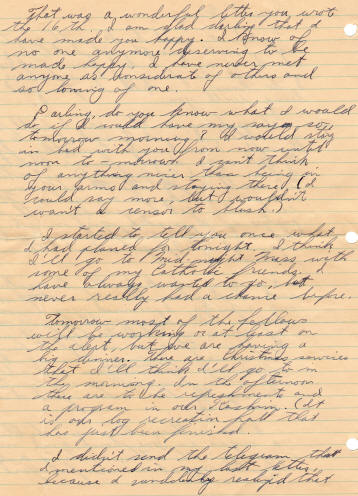 That was a wonderful letter you wrote
the 16th, I am glad darling that I
have made you happy. I know of
no one anymore deserving to be
made happy. I have never met
anyone as considerate of others and
so loving of one.
Darling, do you know what I would
do if I could have my say so
tomorrow morning? I would stay
in bed with you from now until
noon to-morrow I can't think
of anything nicer than being in
your arms and staying there. (I
could say more, but wouldn't
want a censor to blush.)
I started to tell you once what
I had planned for tonight. I think
I'll go to midnight Mass with
some of my Catholic friends. I
have always wanted to go, but
never really had a chance before.
Tomorrow most of the fellows
will be working or at least on
the alert, but we are having a
big dinner. There are Christmas services
that I'll think I'll go to in
the morning. In the afternoon
there are to be refreshments and
a program in our (It
is our log recreation hall that
has just been finished.
I didn't send the telegram that
I mentioned in my last letter,
because I suddenly realized that